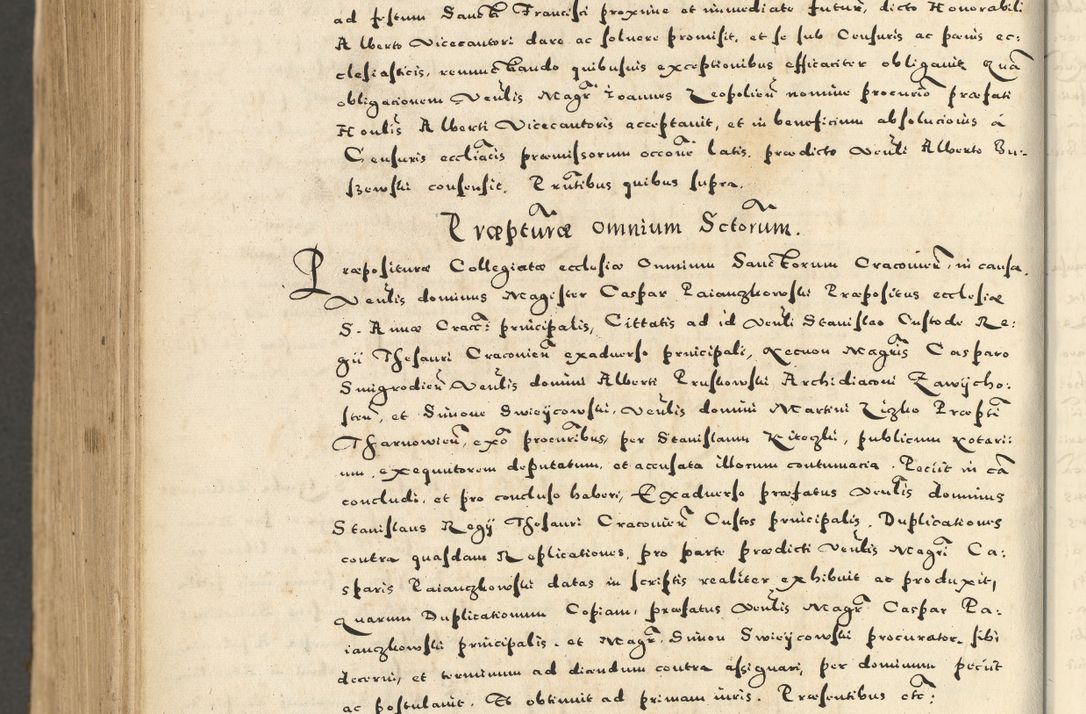 ad festum Sancti Francisci proxime et immediate futur̃, dicto Honorabili
Alberto Vicecantori dare ac soluere promisit, et se sub Censuris ac pœnis ec:
clesiasticis, renunctiando quibusuis exceptionibus efficaciter obligauit. Quã
obligacionem Veñlis Mag̃r Ioannes Leopolieñ nomine procurio præfati
Hoñlis Alberti Vicecantoris acceptauit, et in beneficium absolucionis à
Censuris eccliãcis præmissorum occoñe latis, prædicto Veñli Alberto Bu:
szewski consensit. Prñtibus quibus supra.
Præptũræ omnium Sctorũm.
Præpositura Collegiatæ ecclesiæ Omnium Sanctorum Cracouieñ, in causa.
Veñlis dominus Magister Caspar Paianczkowski Præpositus ecclesiæ
S. Annæ Cracc: principalis, Cittatis ad id Veñli Stanislao Custode Re:
gii Thesauri Cracouieñ exaduerso principali, necnon Magr̃is Casparo
Smigrodieñ Veñlis domini Alberti Pruskowski Archidiaconi Zawijcho:
steñ, et Simone Swieijcowski, Veñlis domini Martini Lizko Præpti
Tharnowieñ, exõ procur̃ibus, per Stanislaum Kitoczki, publicum notari:
um, exequutorem deputatum, et accusata illorum contumacia. Peciit in cã
concludi, et pro concluso haberi, Exaduerso præfatus Veñlis dominus
Stanislaus Regij Thesauri Cracouieñ Custos principalis, Duplicationes
contra quasdam Replicationes, pro parte prædicti Veñlis Magr̃i Ca:
sparis Paianczkowski datas in scriptis realiter exhibuit ac produxit,
quarum Duplicationum Copiam, præfatus Veñlis Magr̃ Caspar Pa:
ianczkowski principalis. et Magr̃, Simon Swieijcowski procurator, sibi
decerni, et terminum ad dicendum contra assignari, per dominum peciit
ac postulauit. Et obtinuit ad primam iuris. Præsentibus etc̃: